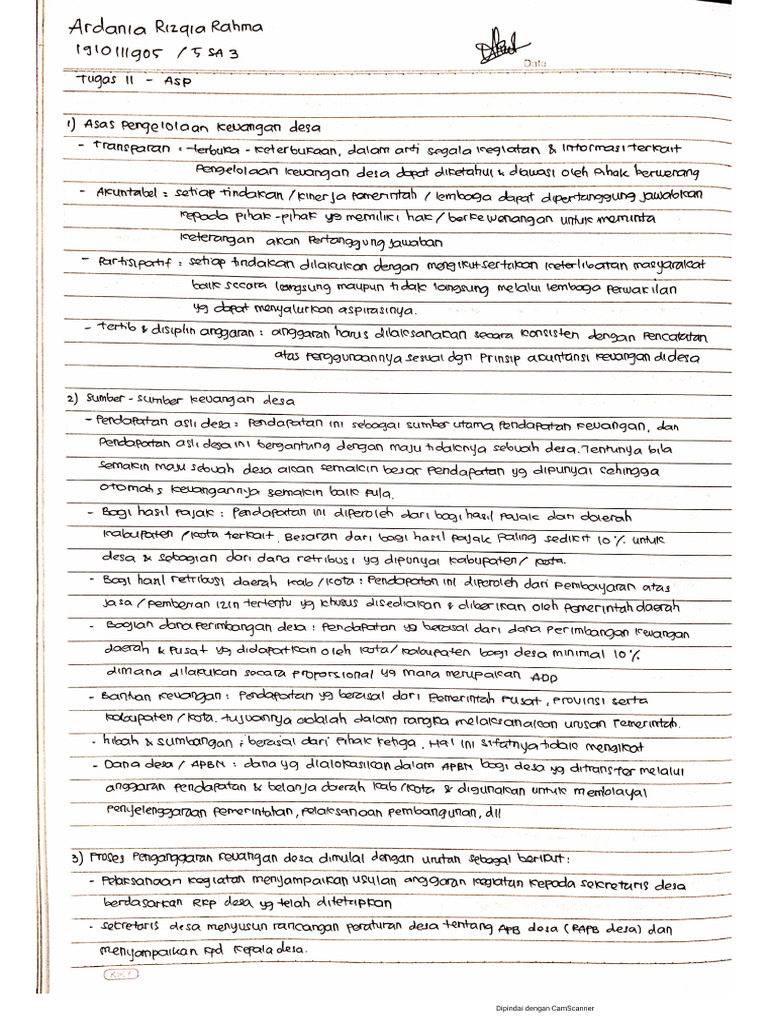 Ardania Rizqia Rahma
1910111905 / 5 SA 3
Date
Tugas 11 - ASP
1) Asas Pengelolaan Keuangan desa
- Transparan : terbuka - keterbukaan, dalam arti segala kegiatan & informasi terkait
Pengelolaan keuangan desa dapat diketahui & diawasi oleh pihak berwenang
- Akuntabel : setiap tindakan / kinerja pemerintah / lembaga dapat dipertanggung jawabkan
kepada pihak-pihak yg memiliki hak / berkewenangan untuk meminta
keterangan akan pertanggung jawaban
- Partisipatif : setiap tindakan dilakukan dengan mengikutsertakan keterlibatan masyarakat
baik secara langsung maupun tidak langsung melalui lembaga perwakilan
yg dapat menyalurkan aspirasinya.
- Tertib & disiplin anggaran : anggaran harus dilaksanakan secara konsisten dengan Pencatatan
atas penggunaannya sesuai dgn prinsip akuntansi keuangan di desa
2) Sumber - sumber keuangan desa
- Pendapatan asli desa : Pendapatan ini sebagai sumber utama pendapatan keuangan, dan
Pendapatan asli desa ini bergantung dengan maju tidaknya sebuah desa. Tentunya bila
semakin maju sebuah desa akan semakin besar pendapatan yg dipunyai sehingga
otomatis keuangannya semakin baik pula.
- Bagi hasil pajak : Pendapatan ini diperoleh dari bagi hasil pajak dari daerah
kabupaten / kota terkait. Besaran dari bagi hasil pajak paling sedikit 10% untuk
desa & sebagian dari dana retribusi yg dipunyai kabupaten / kota.
- Bagi hasil retribusi daerah kab / kota : Pendapatan ini diperoleh dari pembayaran atas
jasa / pemberian izin tertentu yg khusus disediakan & diberikan oleh pemerintah daerah
- Bagian dana perimbangan desa : Pendapatan yg berasal dari dana perimbangan keuangan
daerah & pusat yg didapatkan oleh kota / kabupaten bagi desa minimal 10%
dimana dilakukan secara proporsional yg mana merupakan ADD
- Bantuan keuangan : Pendapatan yg berasal dari pemerintah pusat, provinsi serta
kabupaten / kota. Tujuannya adalah dalam rangka melaksanakan urusan pemerintah.
- hibah & sumbangan : berasal dari pihak ketiga. Hal ini sifatnya tidak mengikat
- Dana desa / APBN : dana yg dialokasikan dalam APBN bagi desa yg ditransfer melalui
anggaran pendapatan & belanja daerah kab / kota & digunakan untuk membiayai
penyelenggaraan pemerintahan, pelaksanaan pembangunan, dll
3) Proses Penganggaran keuangan desa dimulai dengan urutan sebagai berikut :
- Pelaksanaan kegiatan menyampaikan usulan anggaran kegiatan kepada sekretaris desa
berdasarkan RKP desa yg telah ditetapkan
- Sekretaris desa menyusun rancangan peraturan desa tentang APB desa (RAPB desa) dan
menyampaikan kpd kepala desa.
Dipindai dengan CamScanner